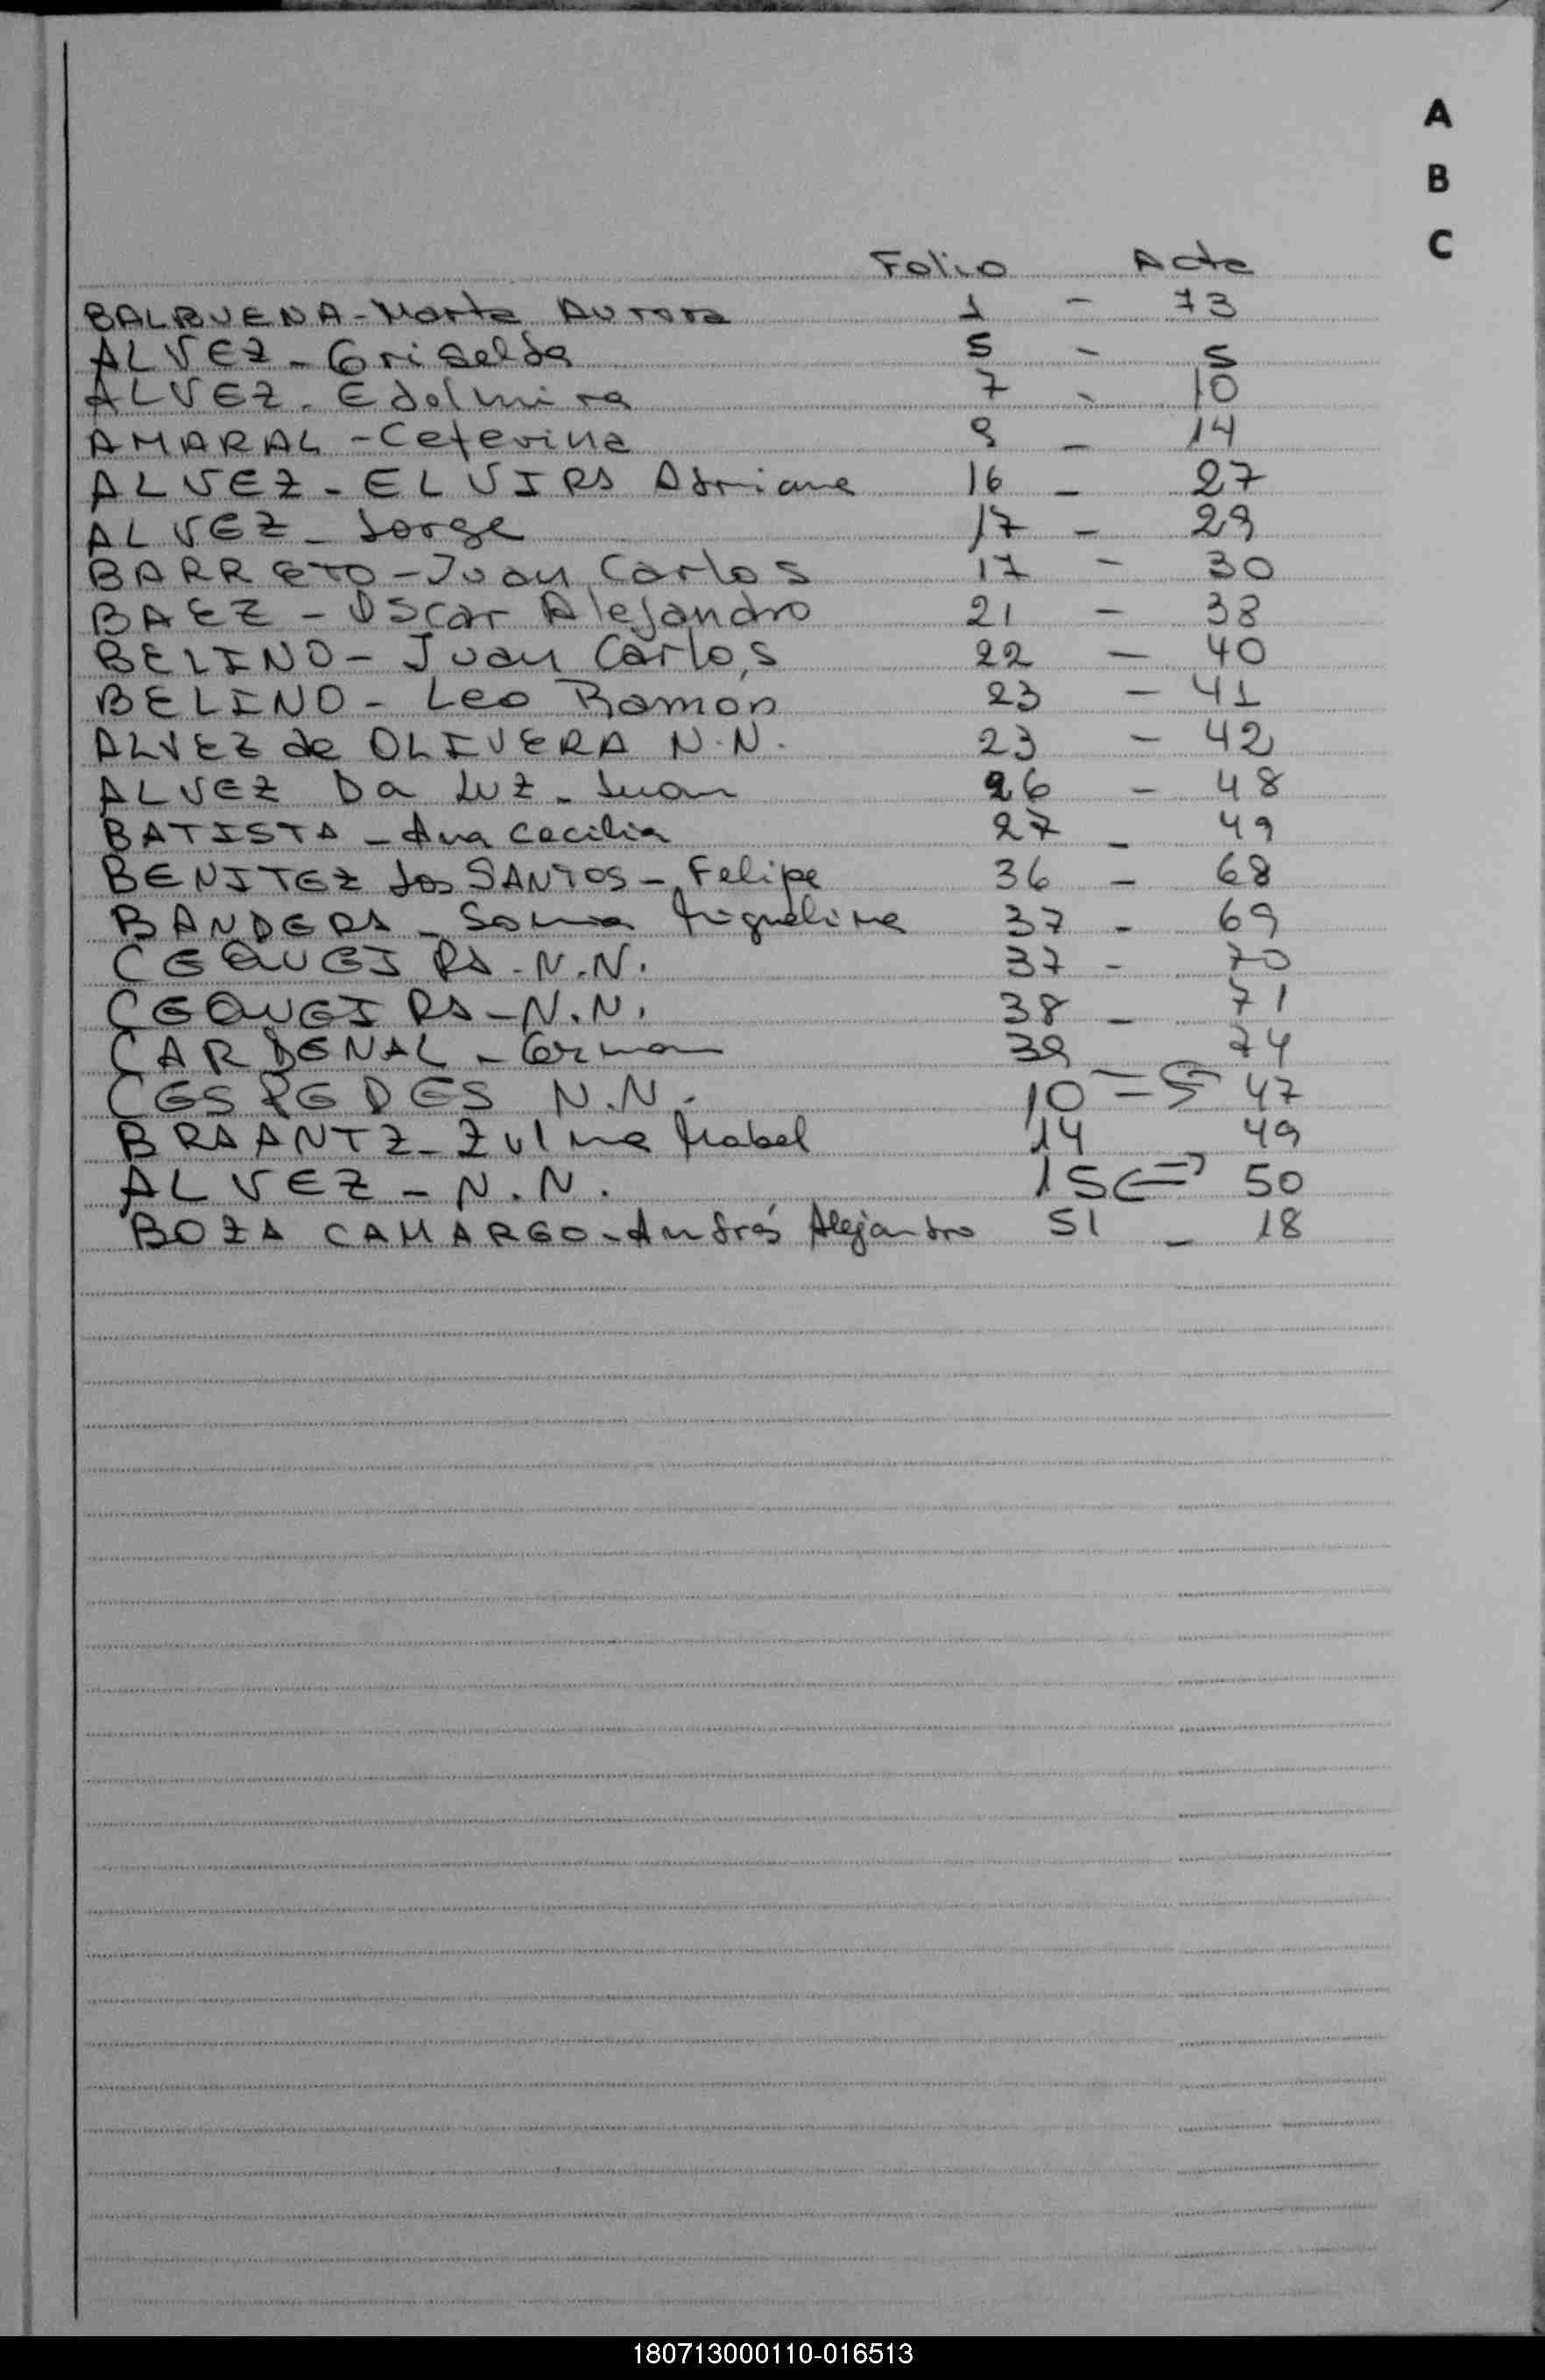 A
B
C
Folio Acta
BALBUENA - Marta Aurora 1 - 73
ALVEZ - Griselda 5 - 5
ALVEZ - Edelmira 7 - 10
AMARAL - Ceferina 9 - 14
ALVEZ - ELVIRA Adriana 16 - 27
ALVEZ - Jorge 17 - 29
BARRETO - Juan Carlos 17 - 30
BAEZ - Oscar Alejandro 21 - 38
BELINO - Juan Carlos 22 - 40
BELINO - Leo Ramon 23 - 41
ALVEZ de OLIVERA N.N. 23 - 42
ALVEZ Da Luz - Juan 26 - 48
BATISTA - Ana Cecilia 27 - 49
BENITEZ dos SANTOS - Felipe 36 - 68
BANDERA - Sonia Miquelina 37 - 69
CEQUEIRA - N.N. 37 - 70
CEQUEIRA - N.N. 38 - 71
CARDENAL - German 39 74
CESPEDES N.N. 10 = 5 47
BRAANTZ - Zulma Mabel 14 49
ALVEZ - N.N. 15 50
BOZA CAMARGO - Andrés Alejandro 51 - 18
180713000110-016513